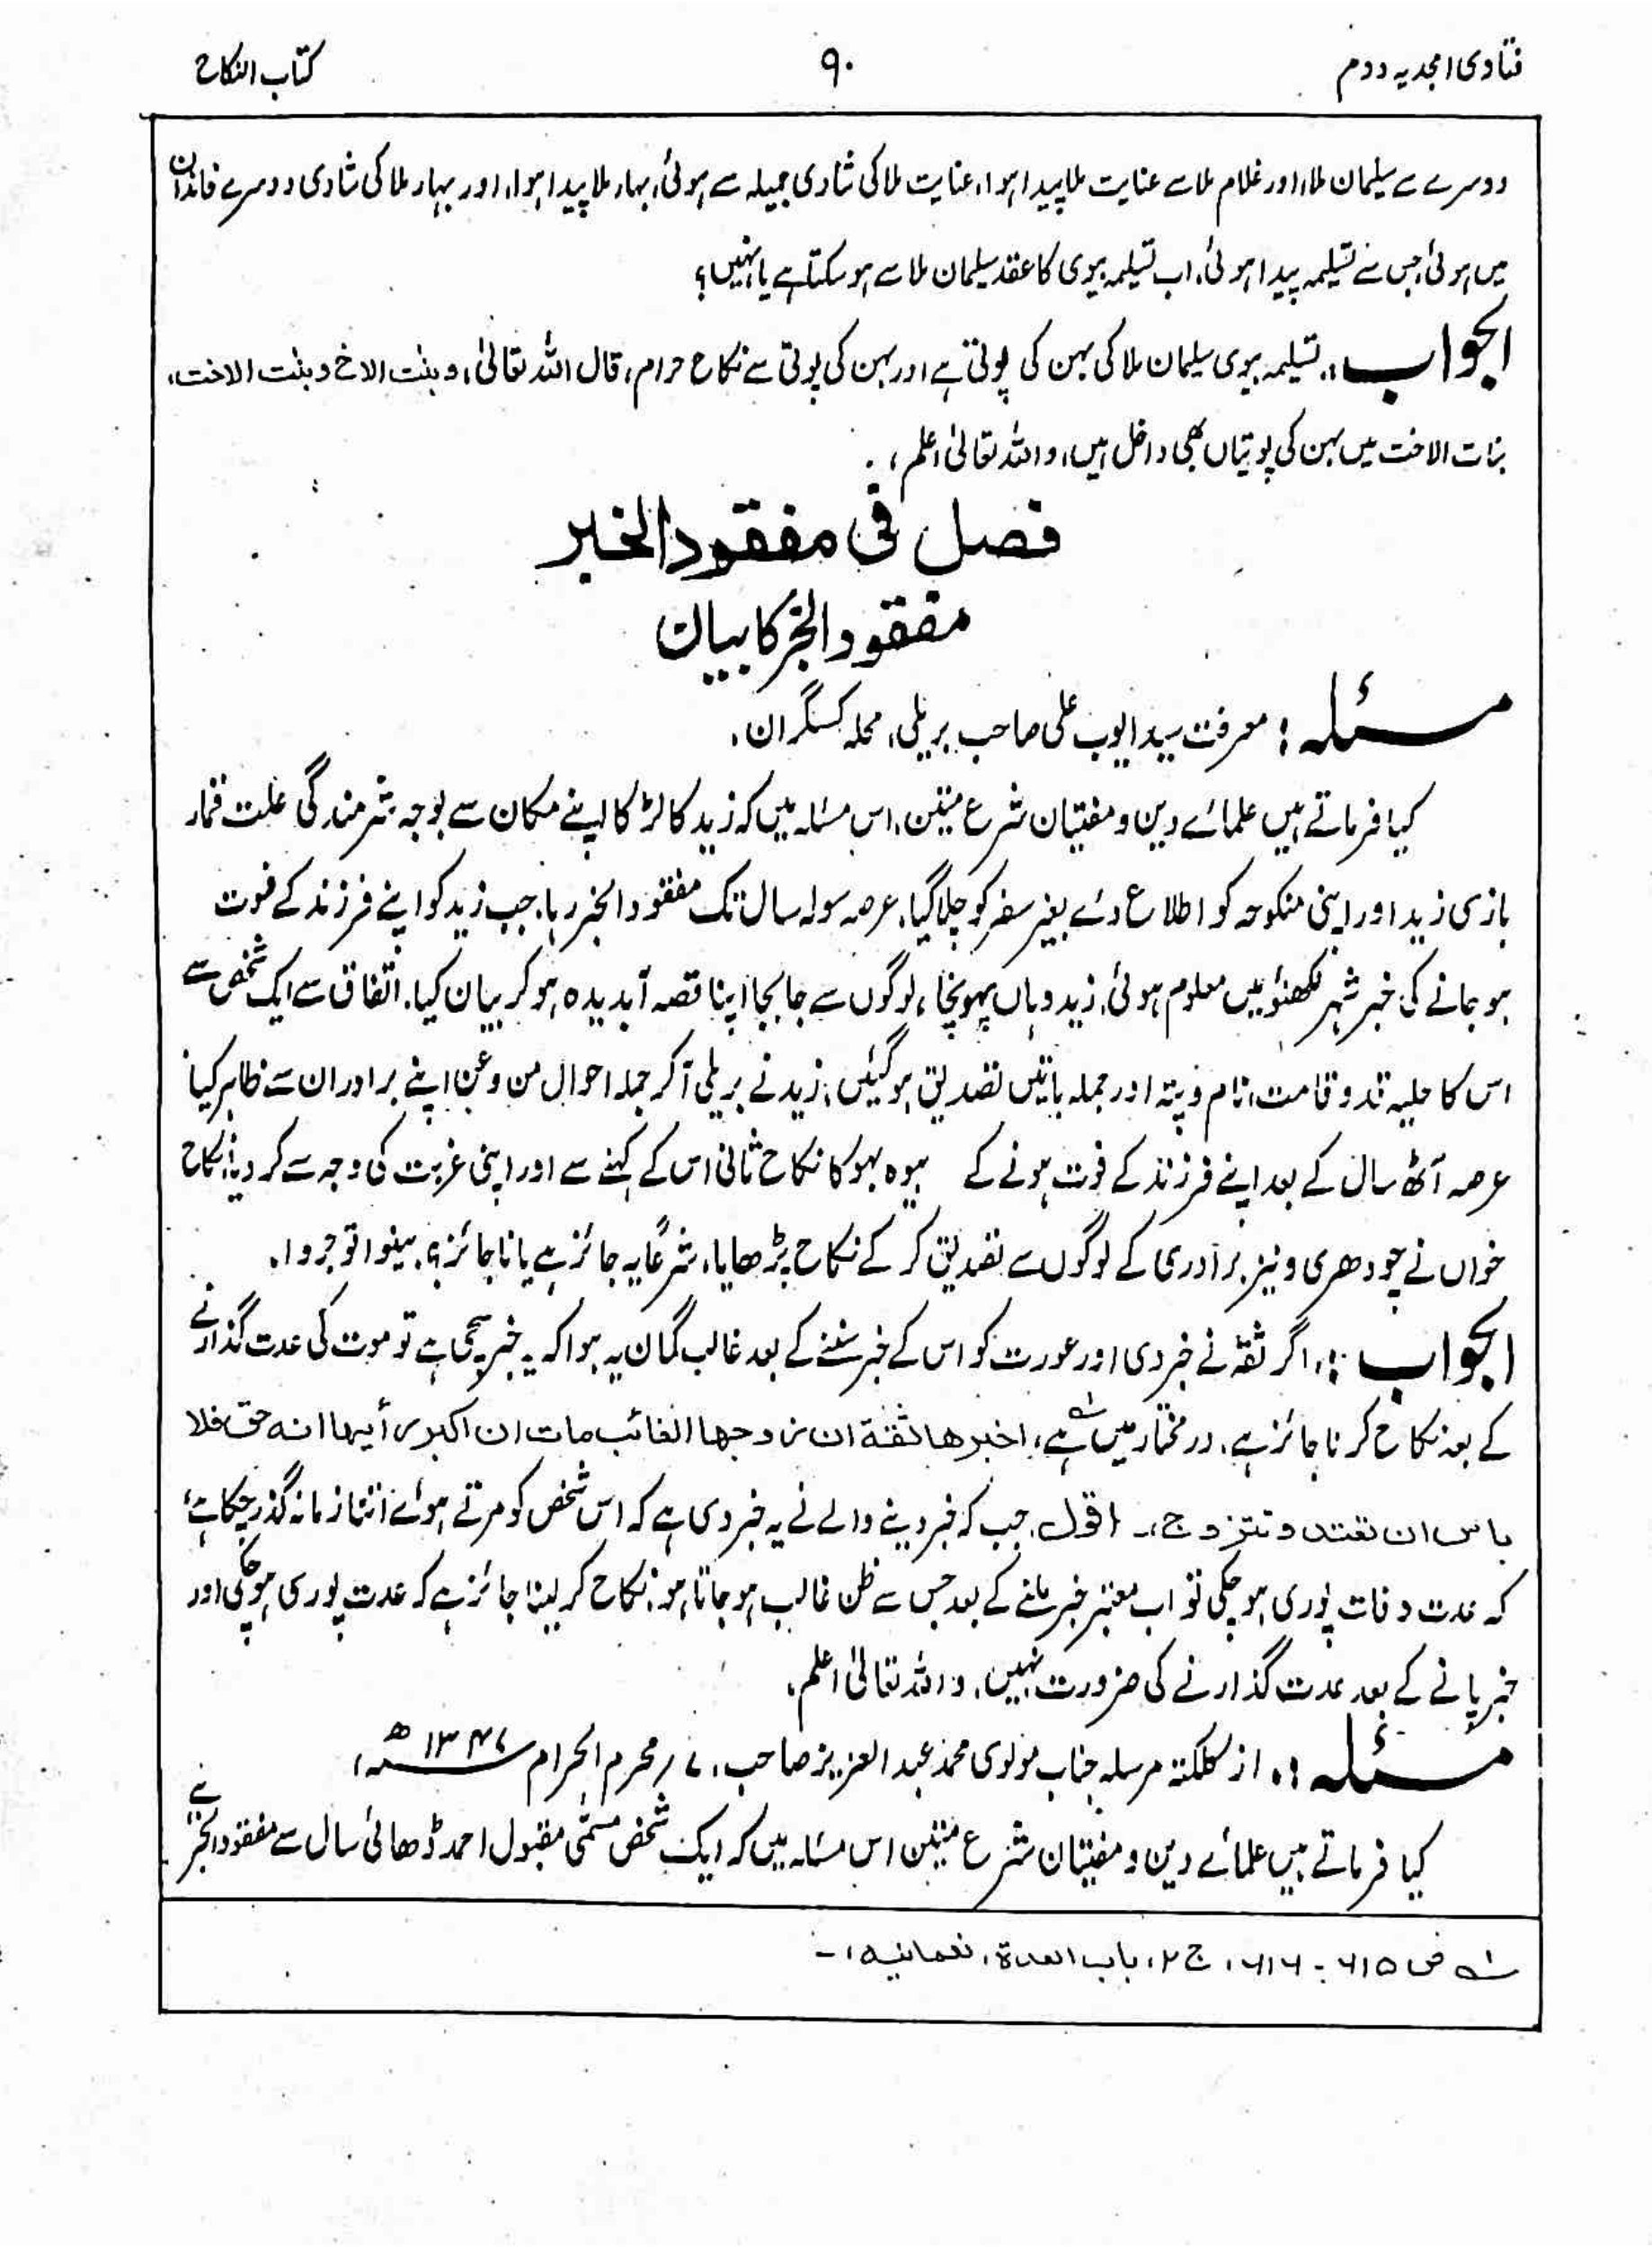 فتاویٰ امجدیہ دوم
۹۰
کتاب النکاح
دوسرے سے سلیمان ملا، اور غلام ملا سے عنایت ملا پیدا ہوا، عنایت ملا کی شادی جمیلہ سے ہوئی، بہار ملا پیدا ہوا، اور بہار ملا کی شادی دوسرے خاندان
میں ہوئی جس نے تسلیمہ پیدا ہوئی، اب تسلیمہ بیوی کا عقد سلیمان ملا سے ہو سکتا ہے یا نہیں؟
الجواب:۔ تسلیمہ بیوی سلیمان ملا کی بہن کی پوتی ہے اور بہن کی پوتی سے نکاح حرام، قال اللہ تعالیٰ، وبنٰت الاخ وبنٰت الاخت،
بنات الاخت میں بہن کی پوتیاں بھی داخل ہیں، واللہ تعالیٰ اعلم،
فصل فی مفقود الخبر
مفقود الخبر کا بیان
مسئلہ: معرفت سید ایوب علی صاحب بریلی، محلہ کسگران،
کیا فرماتے ہیں علمائے دین و مفتیان شرع متین، اس مسئلہ میں کہ زید کا لڑکا اپنے مکان سے بوجہ شرمندگی علت قمار
بازی زید اور اپنی منکوحہ کو اطلاع دئے بغیر سفر کو چلا گیا، عرصہ سولہ سال تک مفقود الخبر رہا، جب زید کو اپنے فرزند کے فوت
ہو جانے کی خبر شہر لکھنؤ میں معلوم ہوئی، زید وہاں پہونچا، لوگوں سے جا بجا اپنا قصہ آبدیدہ ہو کر بیان کیا، اتفاق سے ایک شخص سے
اس کا حلیہ قد و قامت، نام و پتہ اور جملہ باتیں تصدیق ہو گئیں، زید نے بریلی آ کر جملہ احوال من و عن اپنے برادران سے ظاہر کیا
عرصہ آٹھ سال کے بعد اپنے فرزند کے فوت ہونے کے بیوہ بہو کا نکاح ثانی اس کے کہنے سے اور اپنی غربت کی وجہ سے کر دیا، نکاح
خواں نے چودھری و نیز برادری کے لوگوں سے تصدیق کر کے نکاح پڑھایا، شرعاً یہ جائز ہے یا ناجائز؟ بینوا توجروا،
الجواب:۔ اگر ثقہ نے خبر دی اور عورت کو اس کے خبر سننے کے بعد غالب گمان یہ ہوا کہ یہ خبر سچی ہے تو موت کی عدت گذارنے
کے بعد نکاح کرنا جائز ہے، در مختار میں ہے، اخبرها ثقة ان زوجها الغائب مات ان اکبر رأیها انه حق فلا
باس ان تعتد وتتزوج،۔ اقول جب کہ خبر دینے والے نے یہ خبر دی ہے کہ اس شخص کو مرتے ہوئے اتنا زمانہ گذر چکا ہے
کہ عدت وفات پوری ہو چکی تو اب معتبر خبر ملنے کے بعد جس سے ظن غالب ہو جاتا ہو نکاح کر لینا جائز ہے کہ عدت پوری ہو چکی اور
خبر پانے کے بعد عدت گذارنے کی ضرورت نہیں، واللہ تعالیٰ اعلم،
مسئلہ:۔ از کلکتہ مرسلہ جناب مولوی محمد عبد العزیز صاحب، ۷ ر محرم الحرام ۱۳۴۷ھ،
کیا فرماتے ہیں علمائے دین و مفتیان شرع متین اس مسئلہ میں کہ ایک شخص مسمّی مقبول احمد ڈھائی سال سے مفقود الخبر ہے
۱ ص ۶۱۵ - ۶۱۶، ج ۲، باب العدة، نعمانیه،۔